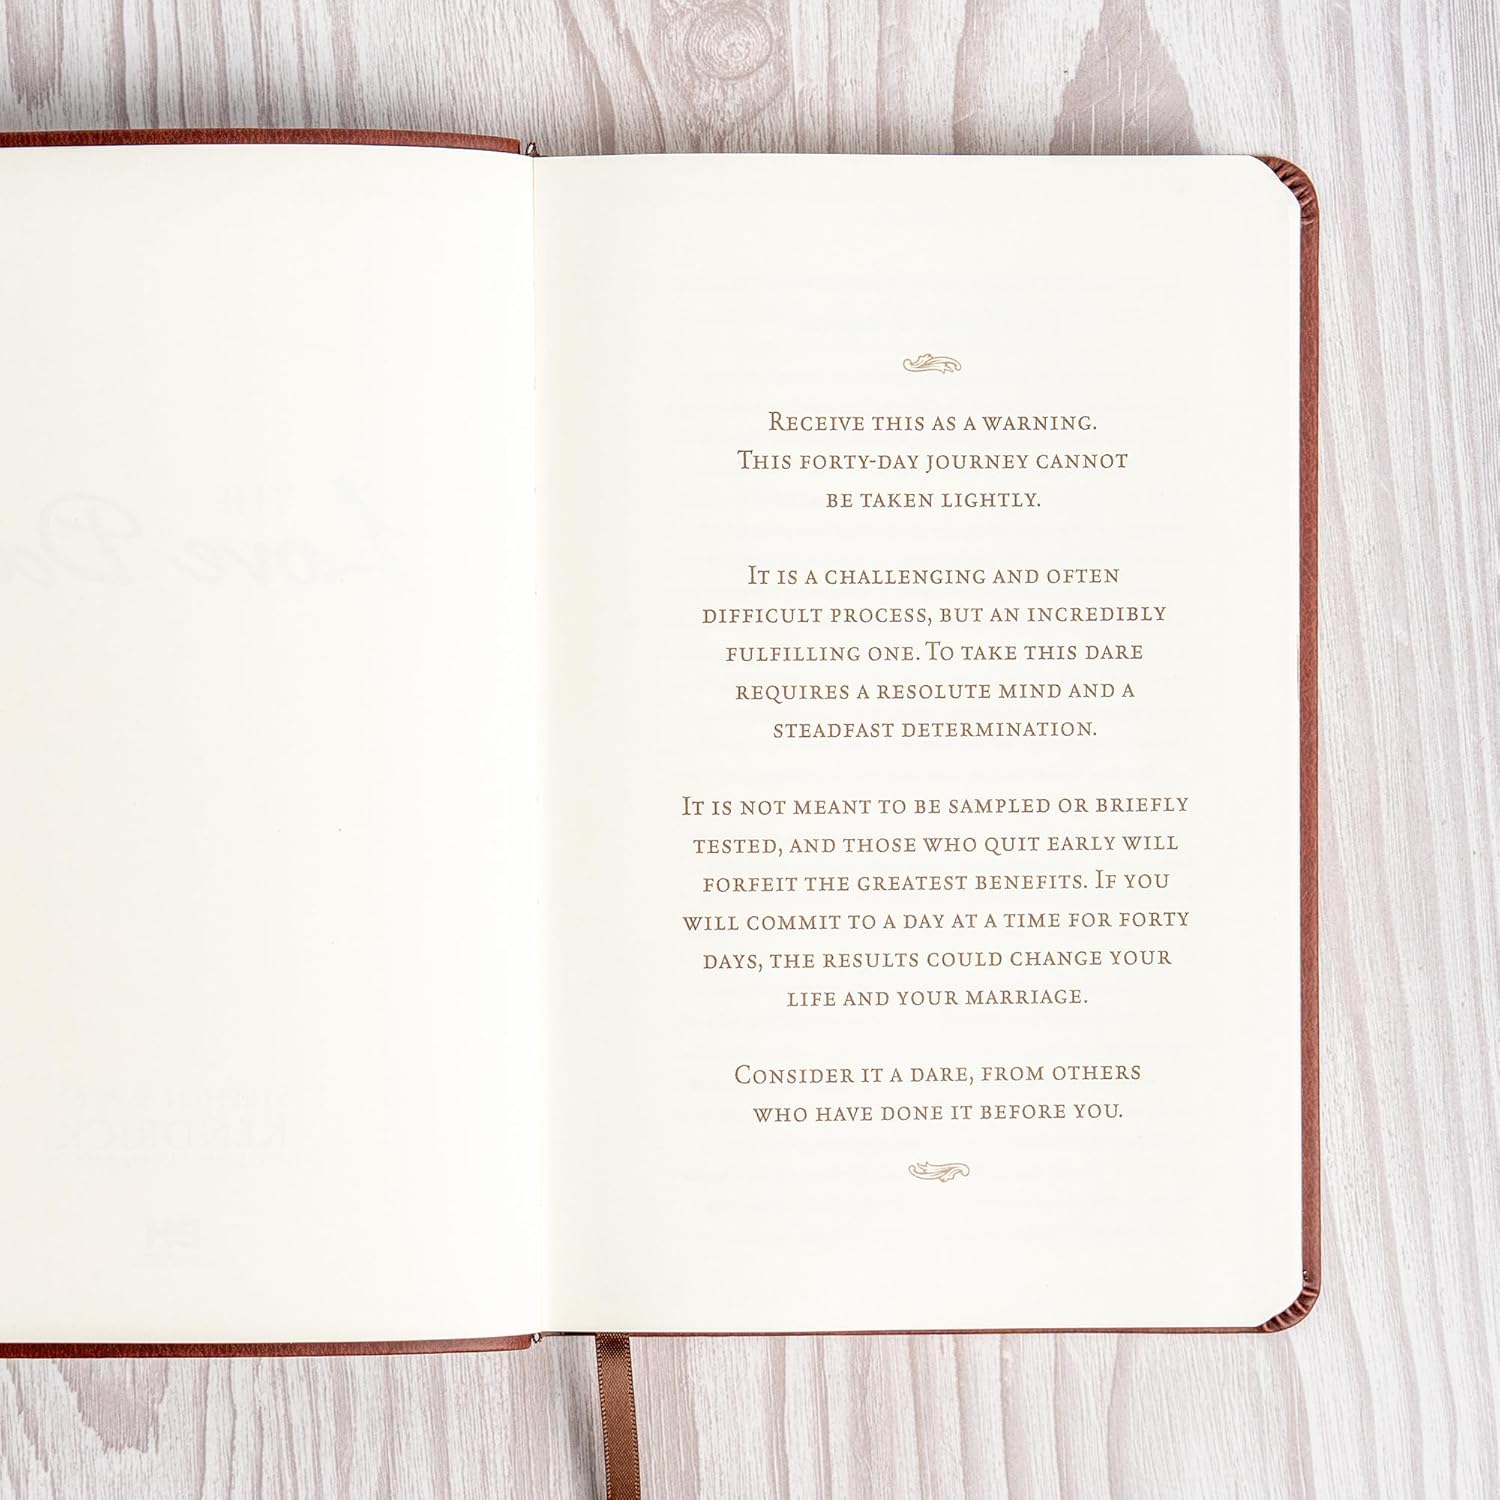 Receive this as a warning.
This forty-day journey cannot
be taken lightly.
It is a challenging and often
difficult process, but an incredibly
fulfilling one. To take this dare
requires a resolute mind and a
steadfast determination.
It is not meant to be sampled or briefly
tested, and those who quit early will
forfeit the greatest benefits. If you
will commit to a day at a time for forty
days, the results could change your
life and your marriage.
Consider it a dare, from others
who have done it before you.